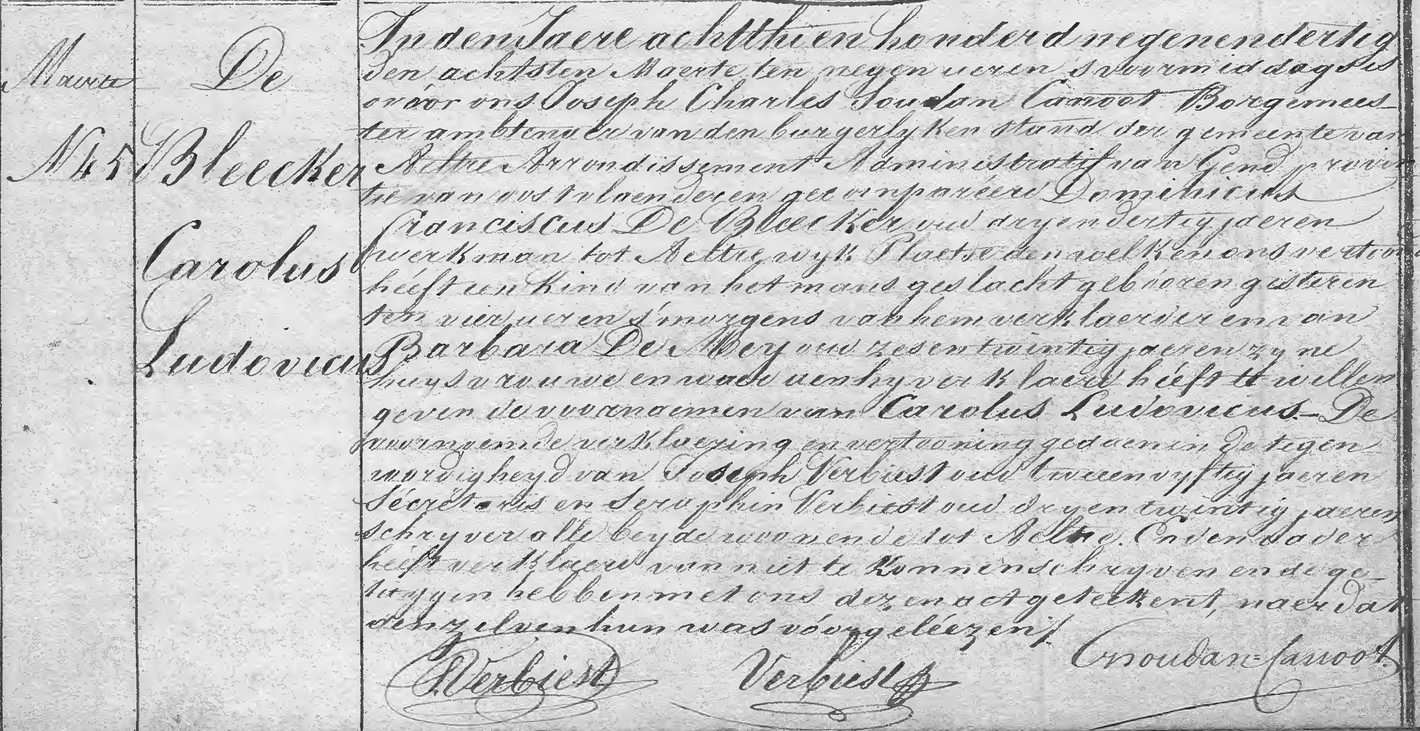 Maerte
N 45
De
Bleecker
Carolus
Ludovicus
In den Jaere achtthien honderd negenendertig
den achtsten Maerte ten negen ueren s'voormiddags is
voóor ons Joseph Charles Soudan Canoot Borgemees-
ter ambtenaer van den burgerlyken stand der gemeente van
Aeltre Arrondissement Administratif van Gend provin
tie van oostvlaenderen gecompareerd Dominicus
Franciscus De Bleecker oud dryendertig jaeren
werkman tot Aeltre wyk Plaetse denwelken ons vertoond
heéft een kind van het mans geslacht gebooren gisteren
ten vier ueren s'morgens van hem verklaerder en van
Barbara De Mey oud zesentwintig jaeren zyne
huysvrouwe en waer aen hy verklaerd heéft te willen
geven de voornaemen van Carolus Ludovicus - De
voornoemde verklaering en vertooning gedaen in de tegen
wordigheyd van Joseph Verbiest oud tweeenvyftig jaeren
Sécretaris en Seraphin Verbiest oud dryentwintig jaeren
schryver alle beyde woonende tot Aeltre. En den vader
heéft verklaerd van niet te konnen schryven en de ge-
tuygen hebben met ons dezen act geteekent, naer dat
denzelven hun was vóorgeleézen/.
S. Verbiest Verbiest Soudan=Canoot